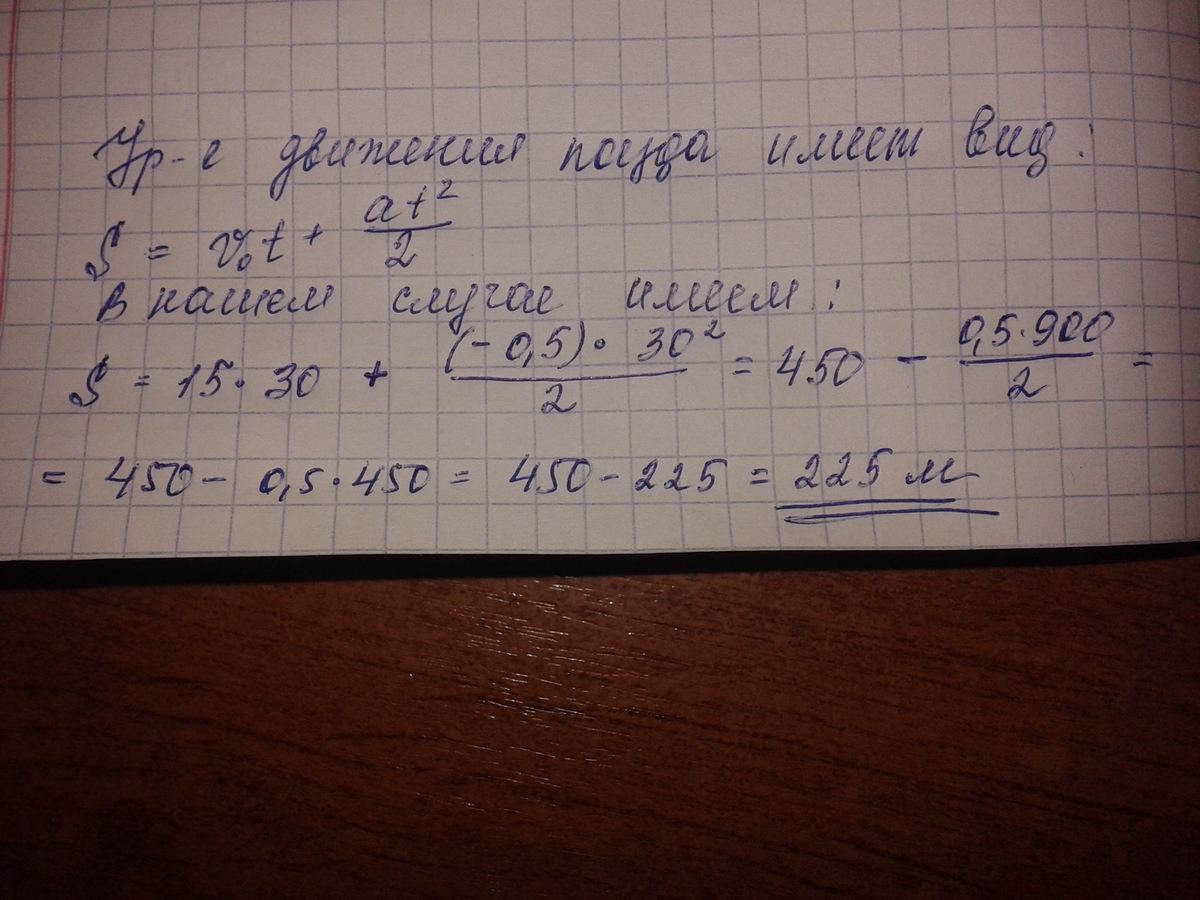 Ур-е движения поезда имеет вид:
S = v₀t + at²/2
В нашем случае имеем:
S = 15·30 + (-0,5)·30²/2 = 450 - 0,5·900/2 =
= 450 - 0,5·450 = 450 - 225 = 225 м